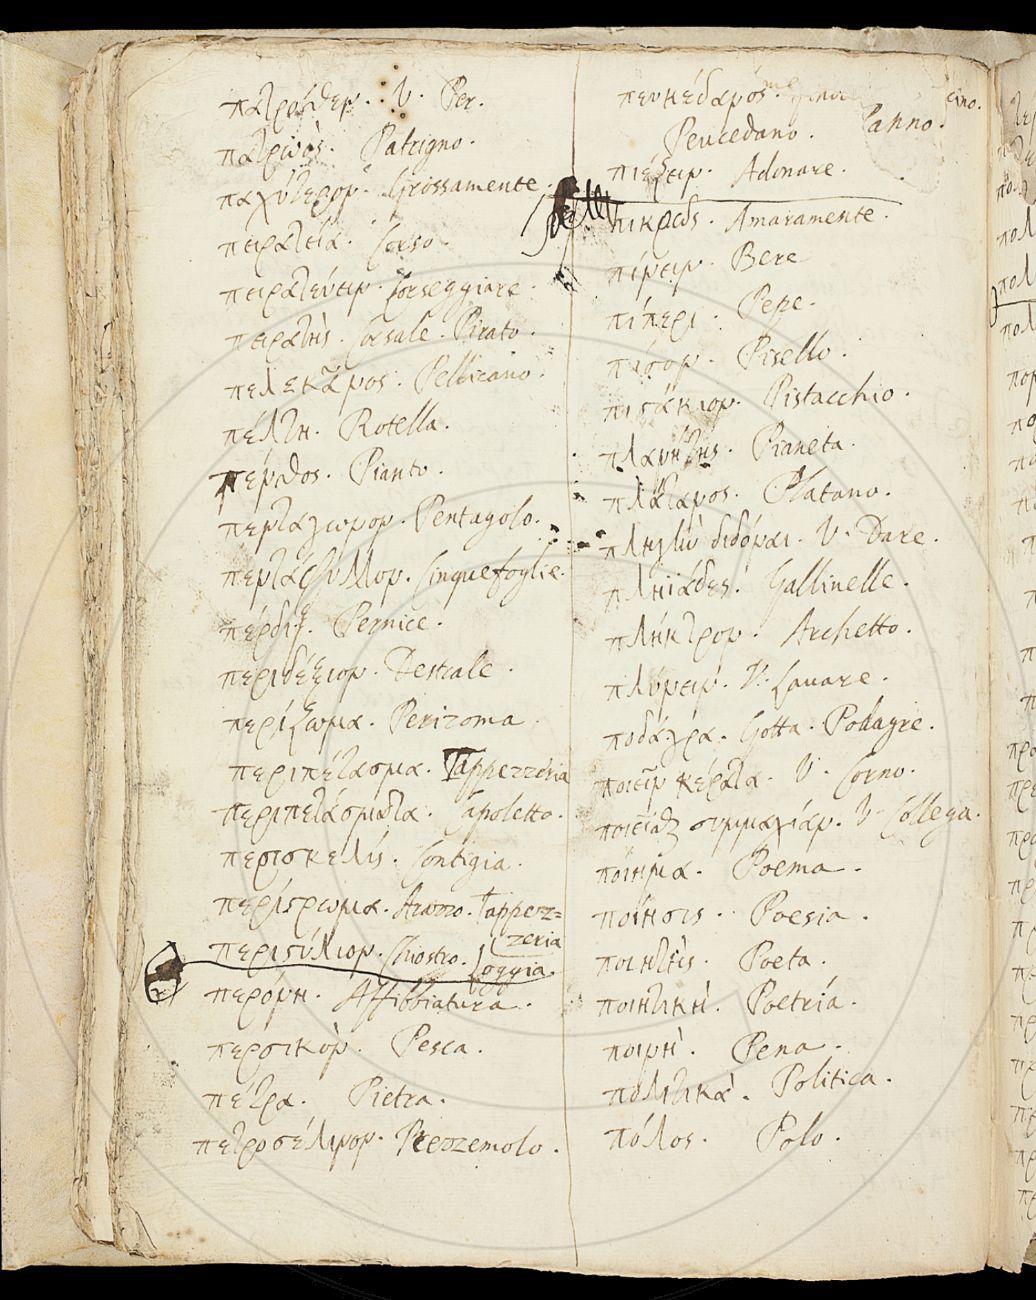 πατρόθεν. V. Per.
πατρῳὸς. Patrigno.
παχύτερον. Grossamente.
πειρατεία. Corso
πειρατεύειν. Corseggiare.
πειρατὴς. Corsale. Pirato.
πελεκᾶνος. Pellicano.
πέλτη. Rotella.
πένθος. Pianto.
πεντάγωνον. Pentagolo.
πεντάφυλλον. Cinquefoglie.
πέρδιξ. Pernice.
περιδέξιον. Destrale.
περίζωμα. Perizoma.
περιπέτασμα. Tappezzeria
περιπετάσματα. Capoletto.
περισκελίς. Contigia.
περίστρωμα. Arazzo. Tappez=
zeria
περιστύλιον. Chiostro. Loggia.
περόνη. Affibbiatura.
περσικὸν. Pesca.
πέτρα. Pietra.
πετροσέλινον. Prezzemolo.
πευκέδανος.
Peucedano.
πιέζειν.
πικρῶς. Amaramente.
πίνειν. Bere
πίπερι. Pepe.
πίσον. Pisello.
πιστάκιον. Pistacchio.
πλανήτης. Pianeta.
πλάτανος. Platano.
πληγὴν διδόναι. V. Dare.
πληϊάδες. Gallinelle.
πλήκτρον. Archetto.
πλύνειν. V. Lavare.
ποδάγρα. Gotta. Podagre.
ποιεῖν κέρατα. V. Corno.
ποιεῖσθαι συμμαχίαν. V. Collega.
ποίημα. Poema.
ποίησις. Poesia.
ποιητὴς. Poeta.
ποιητικὴ. Poetria.
ποινὴ. Pena.
πολιτικὰ. Politica.
πόλος. Polo.